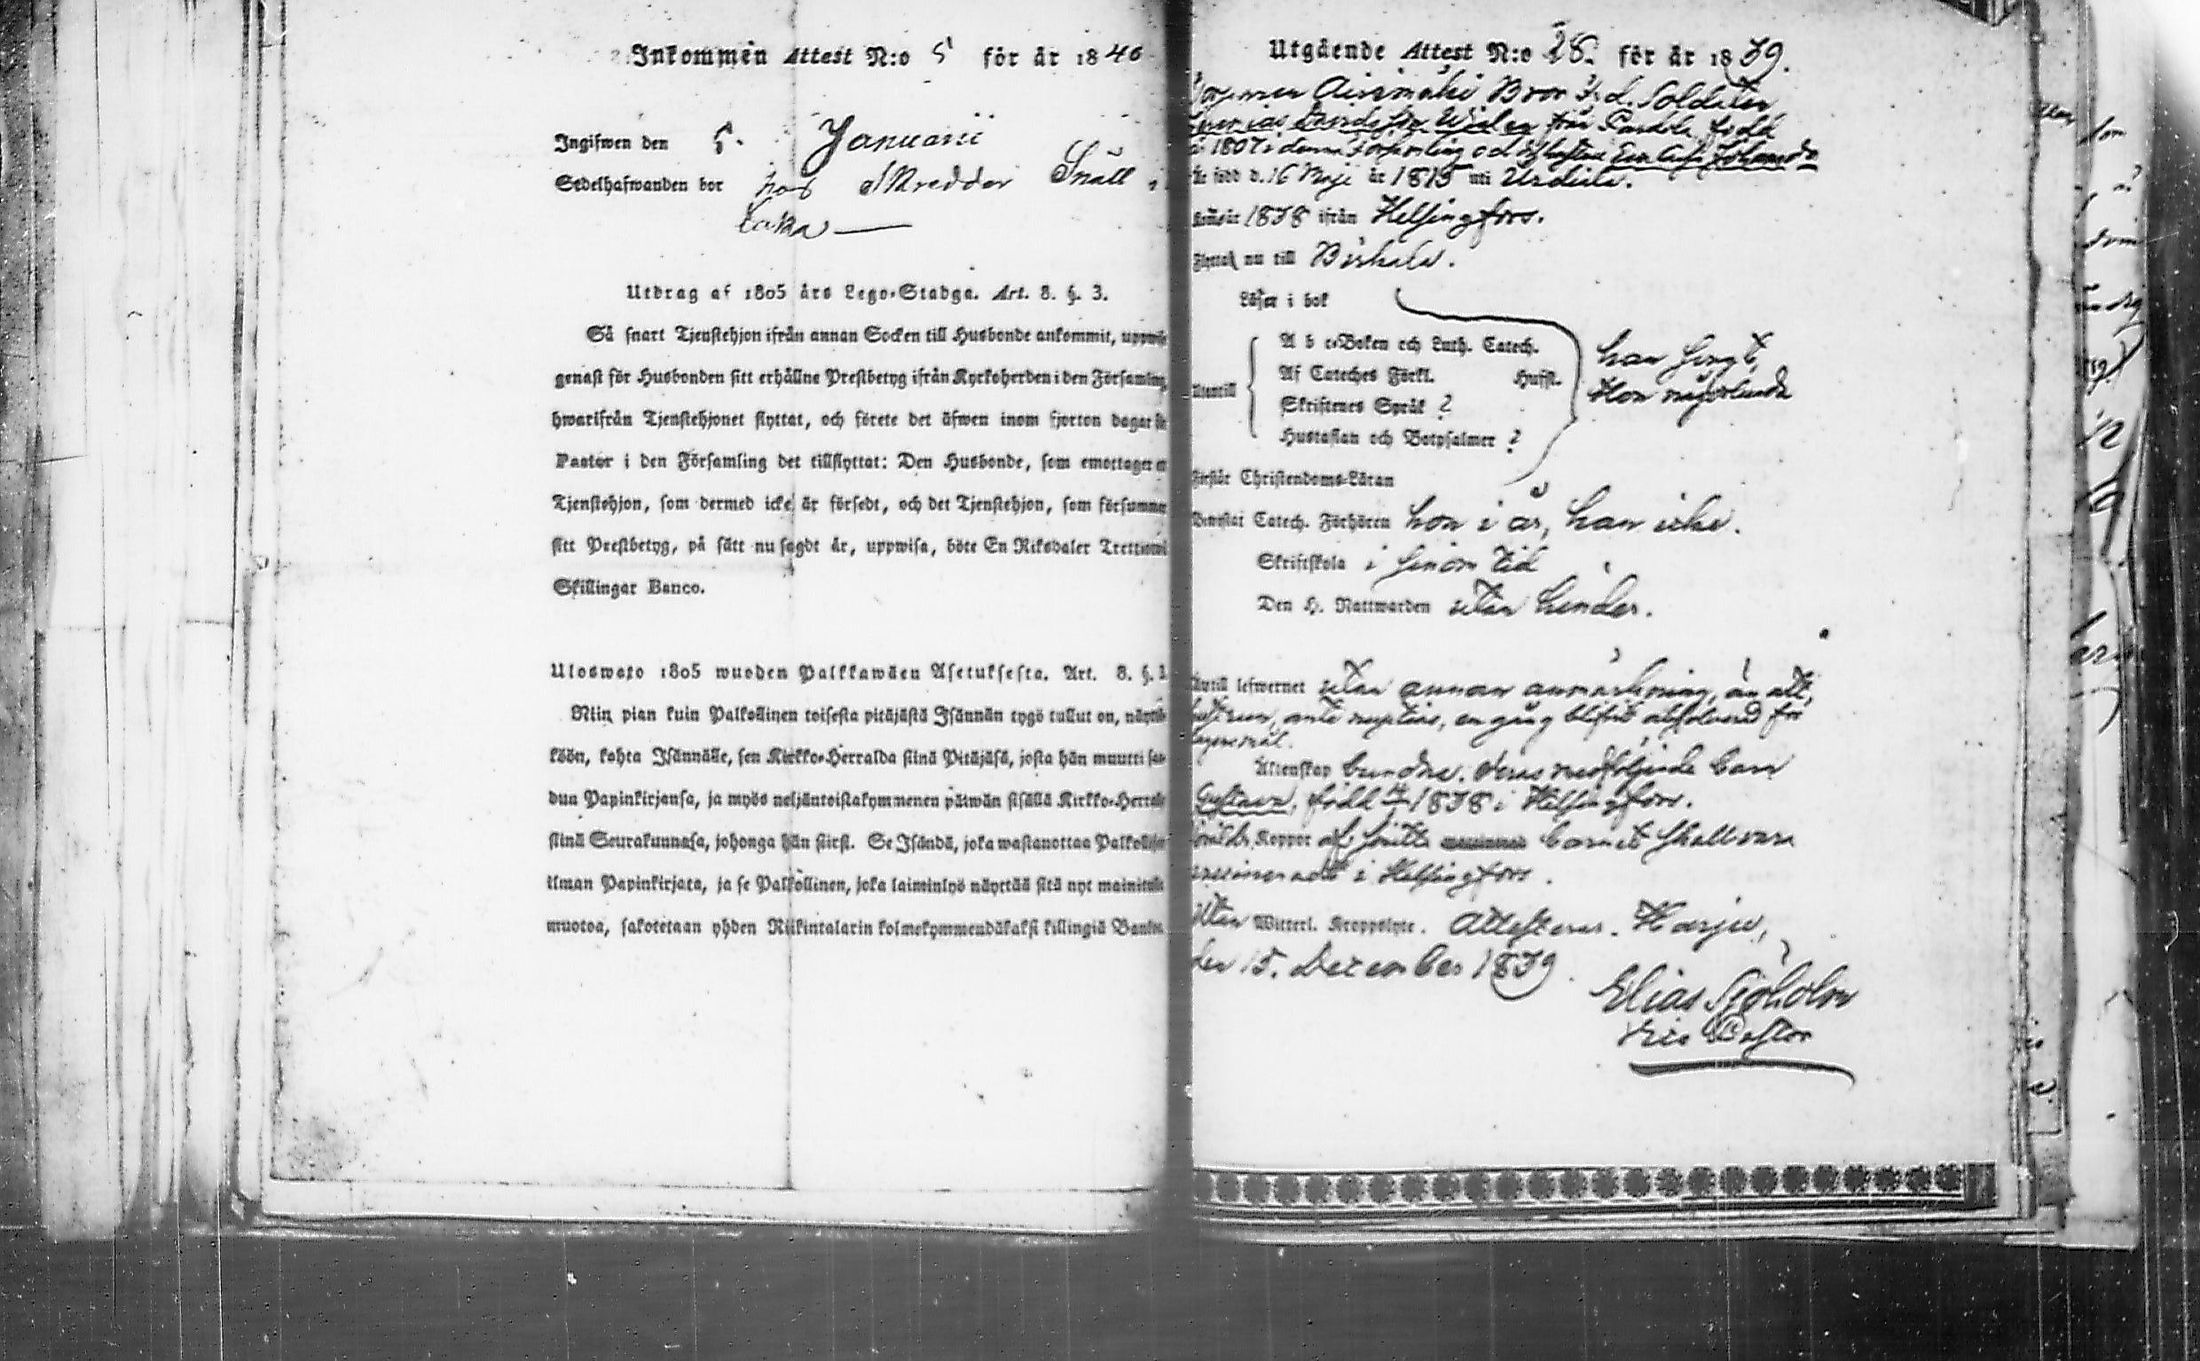 Inkommen Attest N:o 5 för år 1840
Ingifwen den 5. Januarii
Sedelhafwanden bor hos Skredder Snäll i
Laka
Utdrag af 1805 års Lego-Stadga. Art. 8. §. 3.
Så snart Tjenstehjon ifrån annan Socken till Husbonde ankommit, uppwise
genast för Husbonden sitt erhållne Prestbetyg ifrån Kyrkoherden i den Församling
hwarifrån Tjenstehjonet flyttat, och förete det äfwen inom fjorton dagar för
Pastor i den Församling det tillflyttat: Den Husbonde, som emottager et
Tjenstehjon, som dermed icke är försedt, och det Tjenstehjon, som försummar
sitt Prestbetyg, på sätt nu sagdt är, uppwisa, böte En Riksdaler Trettiotwå
Skillingar Banco.
Uloswato 1805 wuoden Palkkawäen Asetuksesta. Art. 8. §. 3.
Niin pian kuin Palkollinen toisesta pitäjästä Isännän tygö tullut on, näyttä-
köön, kohta Isännälle, sen Kirkko-Herralda siinä Pitäjäsä, josta hän muutti saa-
dun Papinkirjansa, ja myös neljäntoistakymmenen päiwän sisällä Kirkko-Herralle
siinä Seurakunnasa, johonga hän siirsi. Se Isändä, joka wastanottaa Palkollisen
ilman Papinkirjata, ja se Palkollinen, joka laiminlyö näyttää sitä nyt mainitulla
muotoa, sakotetaan yhden Riikintalarin kolmekymmendäkaksi killingiä Bankos.
Utgående Attest N:o 28. för år 1839.
Airismäki Bror f.d. Soldaten
från född
1807 i denna Församling och Hustru
är född d. 16 Maji år 1815 uti Urdiala.
1838 ifrån Helsingfors.
Flyttat nu till Birkala.
Läser i bok
A b c-Boken och Luth. Catech.
Af Cateches Förkl. Husfl.
Skriftenes Språk ?
Hustaflan och Botpsalmer ?
Utantill
han swagt,
Hon någorlunda
Förstår Christendoms-Läran
Bewistat Catech. Förhören hon i år, han icke.
Skriftskola i sinom tid
Den H. Nattwarden utan hinder.
Intill lefwernet utan annan anmärkning, än att,
hustrun, ante nuptias, en gång blifwit absolverad för
lägersmål.
Äktenskap bundne. deras medföljande barn
Gustava, född 1838 i Helsingfors.
Koppor af Smitta barnet skall vara
vaccineradt i Helsingfors.
Utan Witterl. Kroppslyte. Attesterar. Harju,
den 15. December 1839.
Elias Sjöholm
Vice Pastor